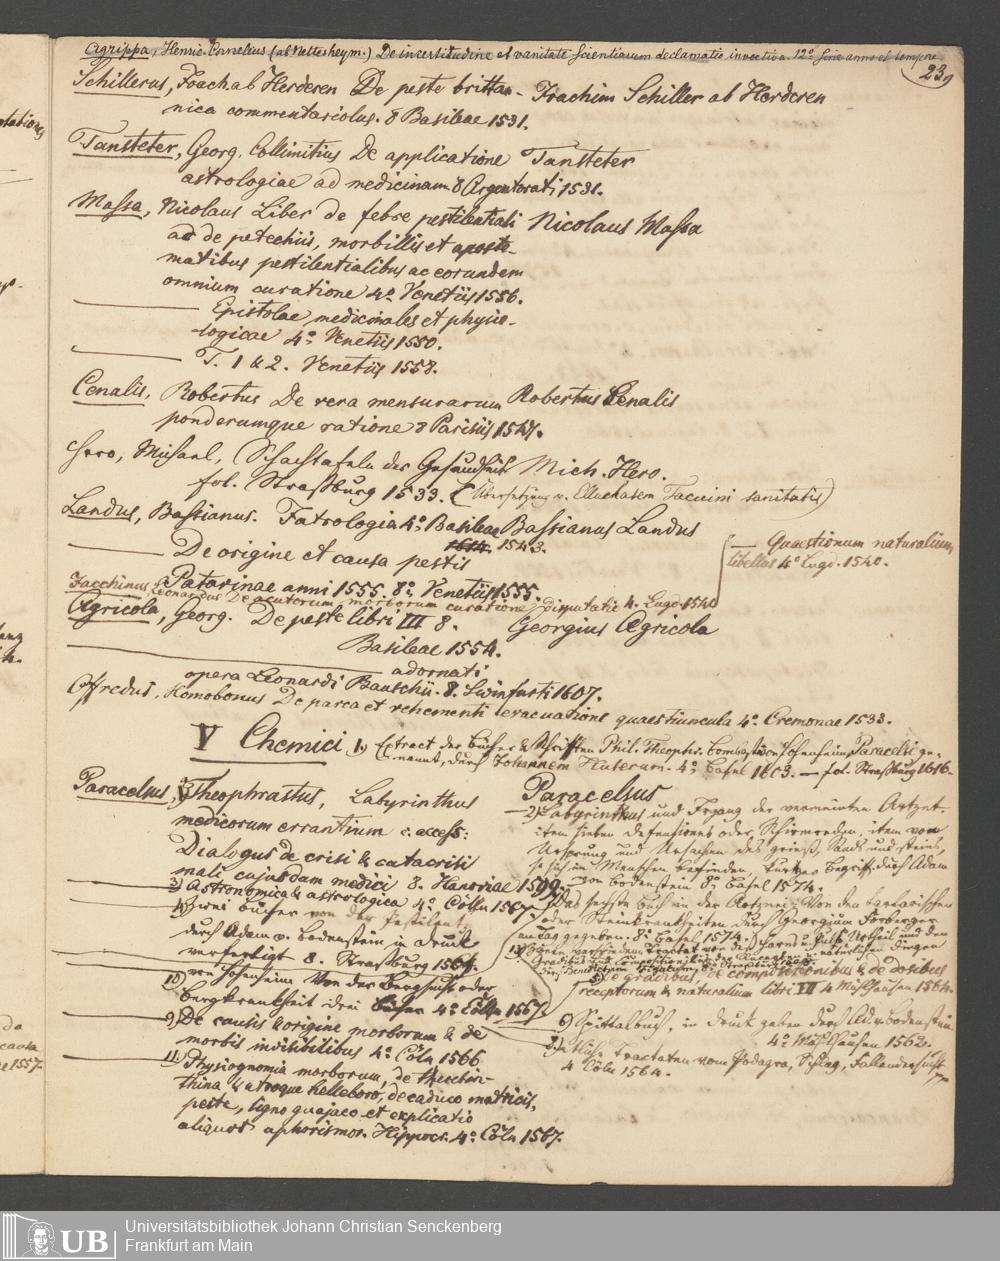 Agrippa, Henric. Cornelius (ab Nettesheym.) De incertitudine et vanitate Scientiarum declamatio invectiva. 12° sine anno et tempore
239
Schillerus, Joach. ab Herderen De peste brittan-
nica commentariolus. 8 Basileae 1531.
Joachim Schiller ab Herderen
Tansteter, Georg. Collimitius De applicatione
astrologiae ad medicinam 8 Argentorati 1531.
Tansteter
Massa, Nicolaus Liber de febre pestilentiali
ac de petechiis, morbillis et aposte-
matibus pestilentialibus ac eorundem
omnium curatione 4° Venetiis 1556.
Nicolaus Massa
Epistolae medicinales et physio-
logicae 4° Venetiis 1550.
T. 1 & 2. Venetiis 1558.
Cenalis, Robertus De vera mensurarum
ponderumque ratione 8 Parisiis 1547.
Robertus Cenalis
Hero, Michael, Schachtafeln der Gesundheit
fol. Straßburg 1533. (Übersetzung v. Elluchasem Tacuini sanitatis)
Mich. Hero.
Landus, Bassianus. Iatrologia 4° Basileae
1543.
Bassianus Landus
De origine et causa pestis
Patavinae anni 1555. 8° Venetiis 1555.
Quaestionum naturalium
libellus 4° Lugd. 1540.
Jacchinus, Leonardus De acutorum morborum curatione disputatio 4. Lugd. 1540
Agricola, Georg. De peste libri III 8.
Basileae 1554.
Georgius Agricola
adornati
opera Leonardi Bauschii. 8. Swinfurti 1607.
Offredus, Homobonus De parca et vehementi evacuatione quaestiuncula 4° Cremonae 1533.
V Chemici
1.) Extract der Bücher & Schriften Phil. Theophr. Bombast von Hohenheim Paracelsi ge-
nannt, durch Johannem Huserum. 4° Basel 1603. — fol. Straßburg 1616.
Paracelsus, Theophrastus, Labyrinthus
medicorum errantium c. access:
Dialogus de crisi & catacrisi
mali cujusdam medici 8. Hanoviae 1599.
3.) Astronomica & astrologica 4° Cölln 1567
4) Zwei Bücher von der Pestilenz
durch Adam v. Bodenstein in Druck
verfertigt 8. Straßburg 1564.
10) von Hohenheim Von der Bergsucht oder
Bergkrankheit drei Bücher 4° Cölln 1567
9) De causis & origine morborum & de
morbis invisibilibus 4° Cöln 1566
11.) Physiognomia morborum, de therebin-
thina & utroque helleboro, de caduco matricis,
peste, ligno guajaco et explicatio
aliquot aphorismor. Hippocr. 4° Cöln 1567.
Paracelsus
2) Labyrinthus und Irgang der vermeinten Artzet.
item sieben defensiones oder Schirmreden, item von
Ursprung und Ursachen des Grieß, Sands und Steins,
so sich im Menschen befinden, kurtzer Begriff durch Adam
von Bodenstein 8° Basel 1574.
Das sechste Buch in der Artznei. Von den tartarischen
oder Steinkrankheiten durch Georgium Forberger
an Tag gegeben. 8° Basel 1574.
De gradibus, de compositionibus & de dosibus
receptorum & naturalium libri VII 4 Mülhausen 1564.
6) Spittalbuch, in Druck geben durch Ad. v. Bodenstein
4° Mülhausen 1562.
Tractaten vom Podagra, Schlag, Fallendersucht
4 Cöln 1564.
UB
Universitätsbibliothek Johann Christian Senckenberg
Frankfurt am Main